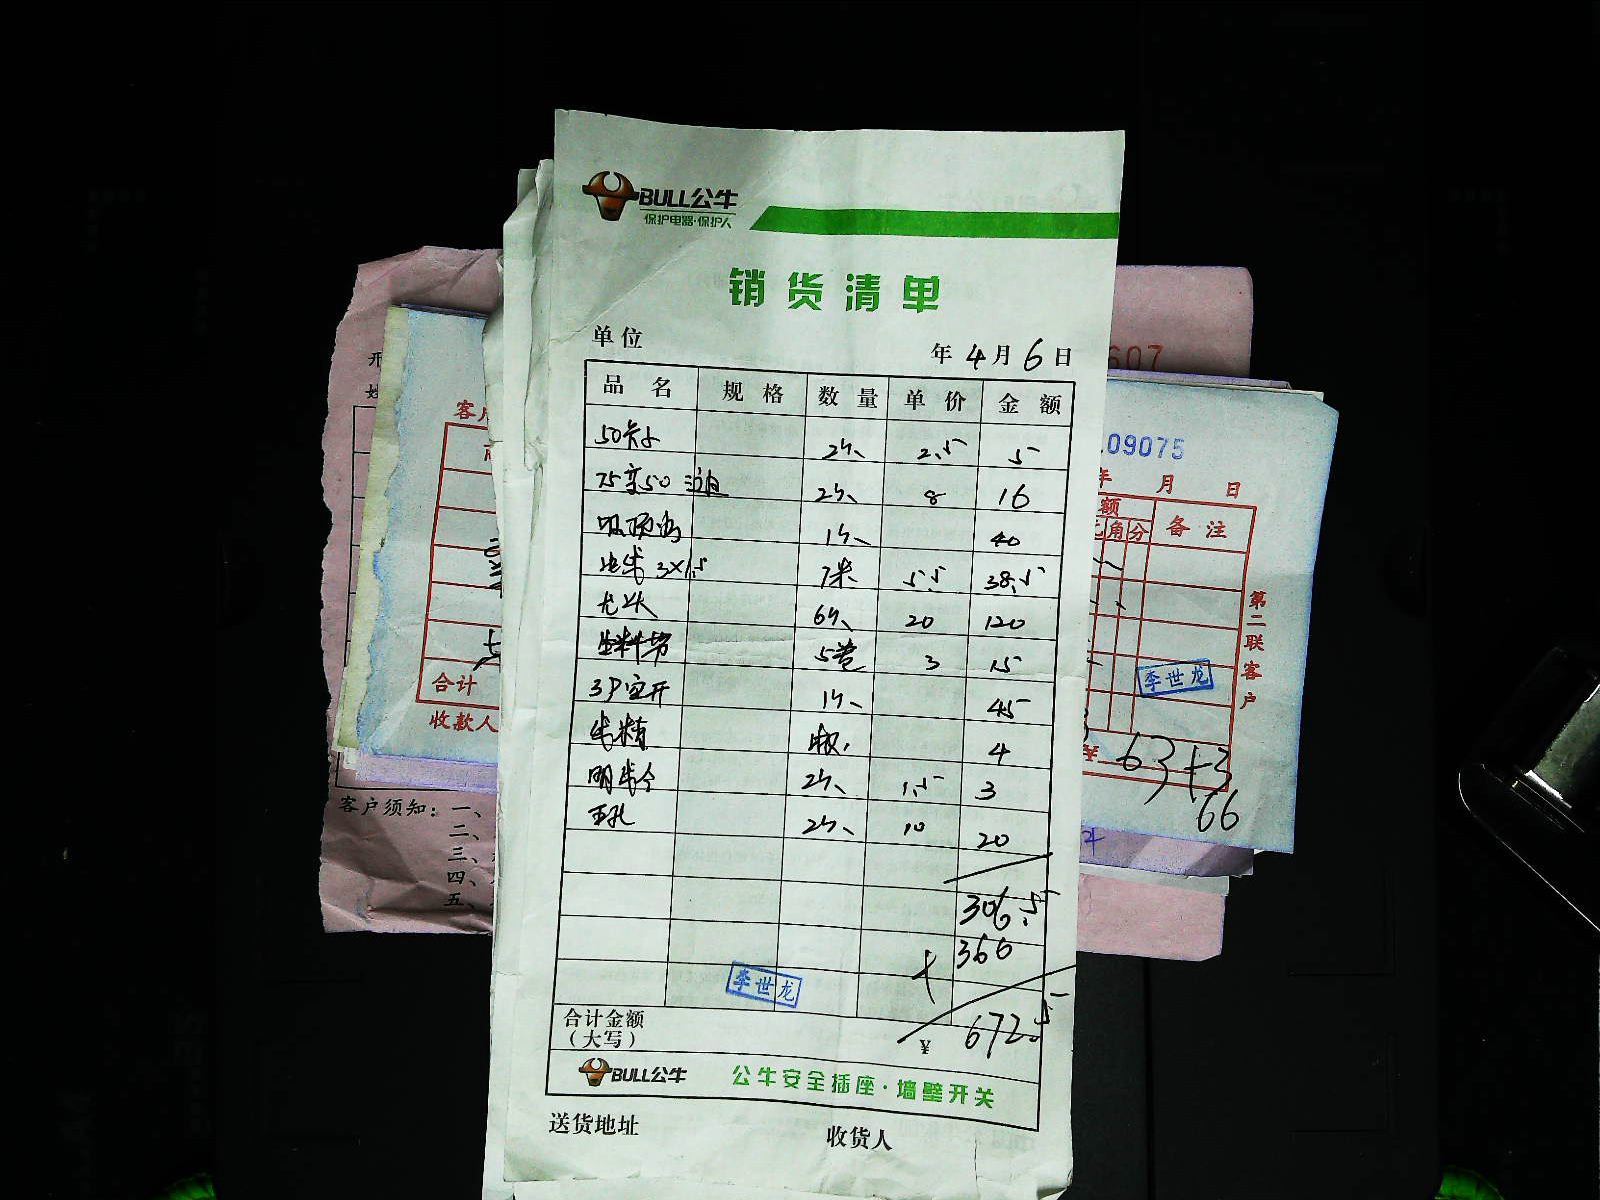 BULL公牛
保护电器·保护人
销货清单
单位
年 4 月 6 日
品名 规格 数量 单价 金额
50卡子 2个 2.5 5
75变50 2个 8 16
吸顶 1个 40
3×1.5 7米 5.5 38.5
龙头 6个 20 120
生料带 5卷 3 15
3P空开 1个 45
4
2个 1.5 3
五孔 2个 10 20
306.5
+ 366
李世龙
合计金额
（大写）
¥ 672.5
BULL公牛 公牛安全插座·墙壁开关
送货地址 收货人
客户
合计
收款人
客户须知：一、
二、
三、
四、
五、
607
09075
年 月 日
额 备注
元角分
第二联客户
李世龙
¥ 63+3
66